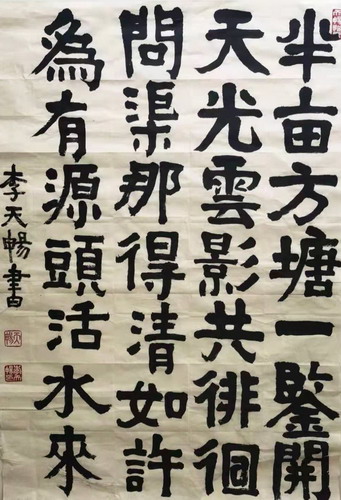 半亩方塘一鑒開
天光雲影共徘徊
問渠那得清如許
為有源頭活水來
李天暢書